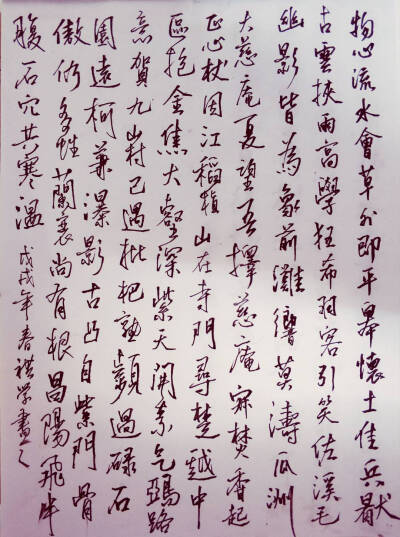 物心流水會草外即平皋懷土佳兵厭
古雲挾雨高學狂希羽客引笑佐溪毛
幽影皆為象前灘響莫濤瓜洲
大慈庵夏望吾擇慈庵寂焚香起
正心杖因江稻積山在寺門尋楚越中
區抱金焦大壑深紫天開素气鴻路
意賀九山村已過枇杷熟頻過碌石
園遠柯兼瀑影古凸自紫門骨
傲修多性蘭衰尚有根昌陽飛牛
腹石穴共寒溫戊戌年春禊學書之